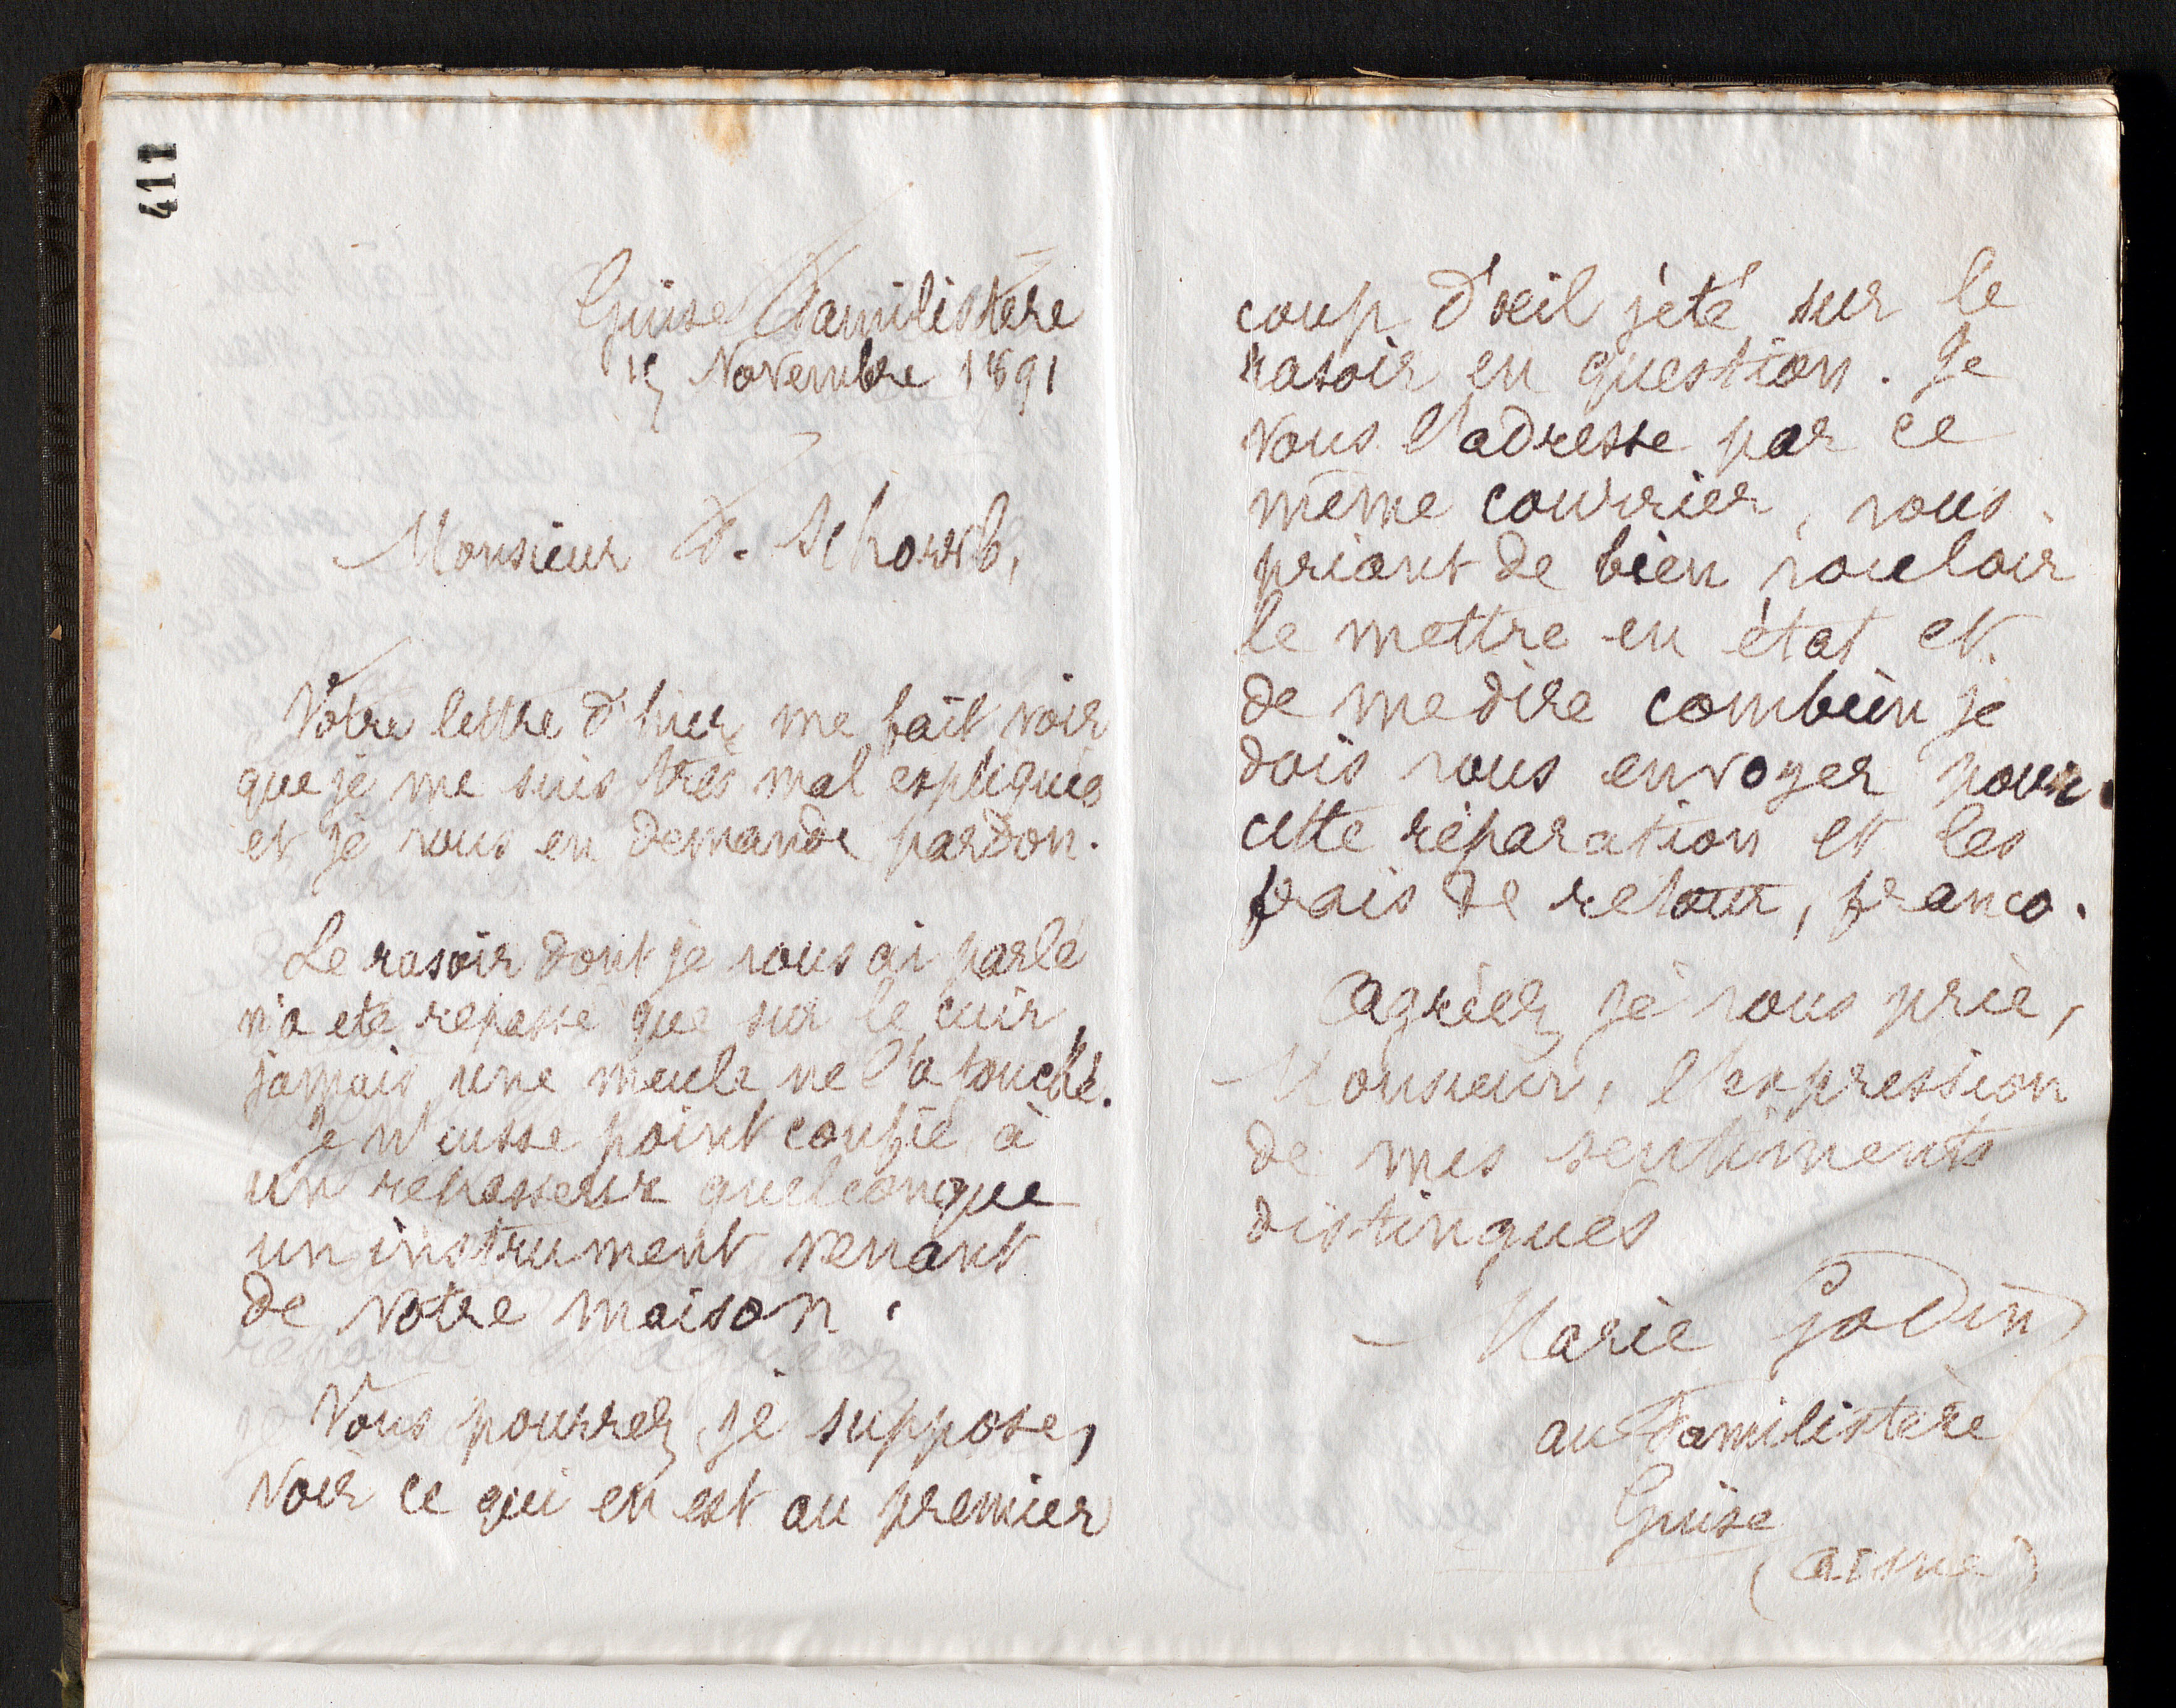 411
Guise Familistère
Novembre 1891
Monsieur
Votre lettre d'hier me fait voir
que je me suis très mal expliquée
et je vous en demande pardon.
Le rasoir dont je vous ai parlé
n'a été repassé que sur le cuir,
jamais une meule ne l'a touché.
Je n'eusse point confié à
un repasseur quelconque
un instrument venant
de votre maison.
Vous pourrez, je suppose,
voir ce qui en est au premier
coup d'œil jeté sur le
rasoir en question. Je
vous l'adresse par ce
même courrier, vous
priant de bien vouloir
le mettre en état et
de me dire combien je
dois vous envoyer pour
cette réparation et les
frais de retour, franco.
Agréez, je vous prie,
Monsieur, l'expression
de mes sentiments
distingués
Marie Godin
au Familistère
Guise
(Aisne)